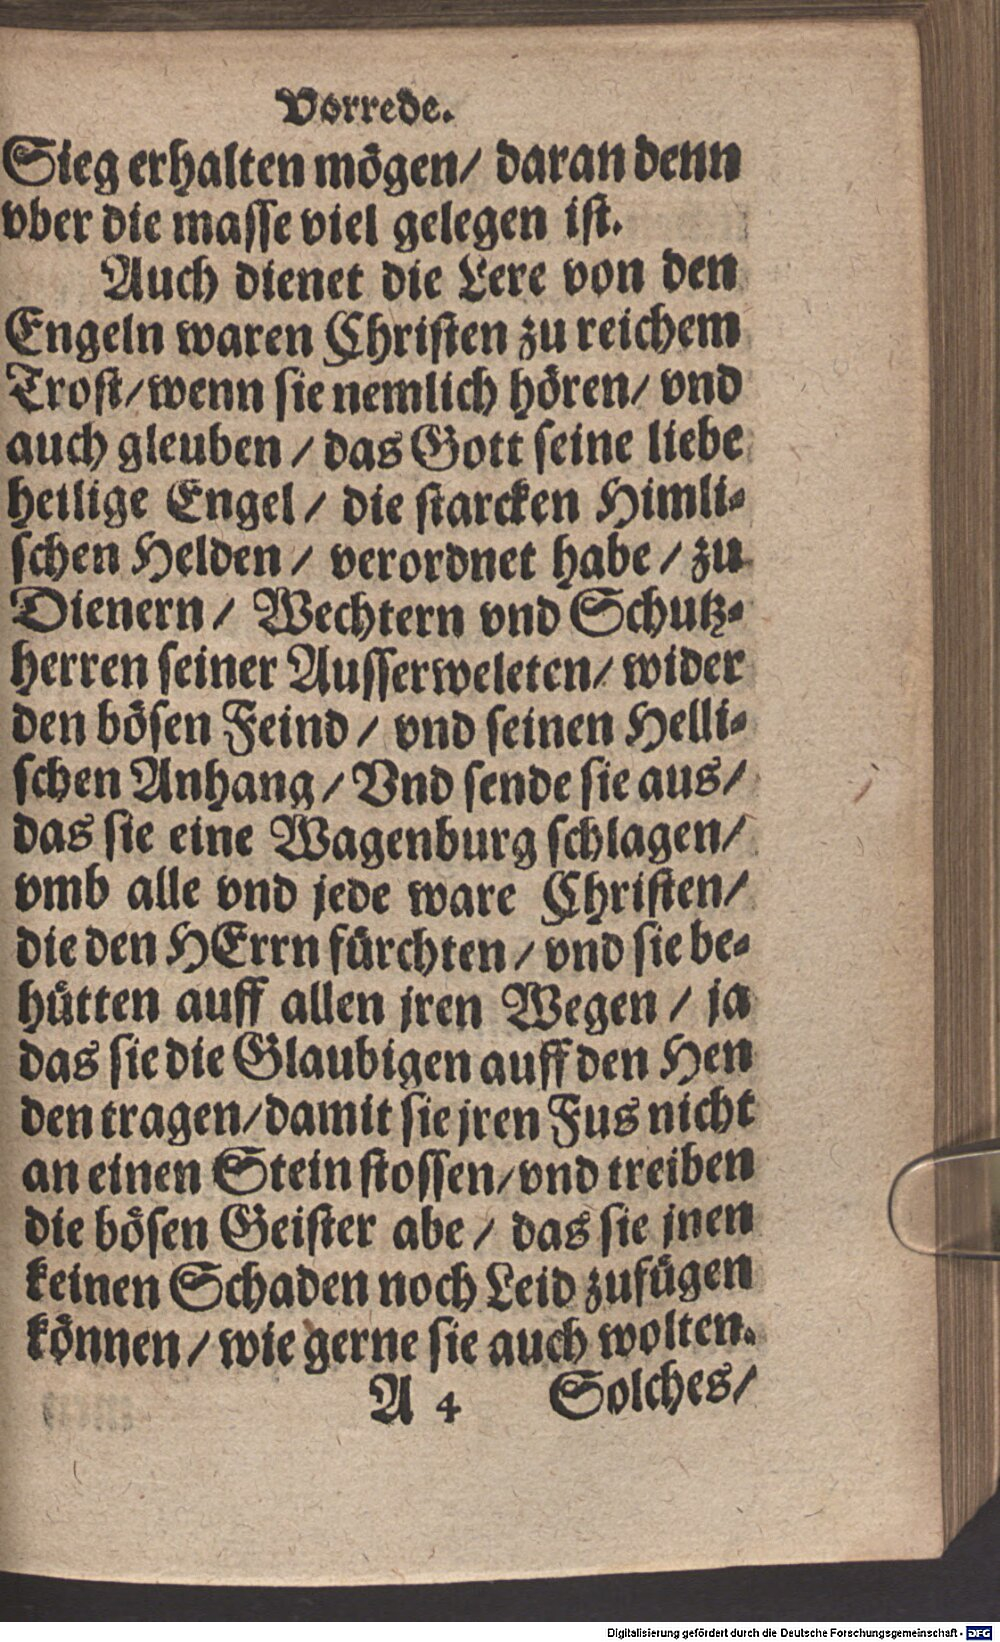 Vorrede.
Sieg erhalten mögen/ daran denn
vber die masse viel gelegen ist.
Auch dienet die Lere von den
Engeln waren Christen zu reichem
Trost/ wenn sie nemlich hören/ vnd
auch gleuben / das Gott seine liebe
heilige Engel / die starcken Himli-
schen Helden / verordnet habe / zu
Dienern / Wechtern vnd Schutz-
herren seiner Ausserweleten/ wider
den bösen Feind / vnd seinen Helli-
schen Anhang / Vnd sende sie aus/
das sie eine Wagenburg schlagen/
vmb alle vnd jede ware Christen/
die den HErrn fürchten / vnd sie be-
hütten auff allen jren Wegen / ja
das sie die Glaubigen auff den Hen
den tragen/ damit sie jren Fus nicht
an einen Stein stossen/ vnd treiben
die bösen Geister abe / das sie jnen
keinen Schaden noch Leid zufügen
können / wie gerne sie auch wolten.
A 4 Solches/
Digitalisierung gefördert durch die Deutsche Forschungsgemeinschaft - DFG